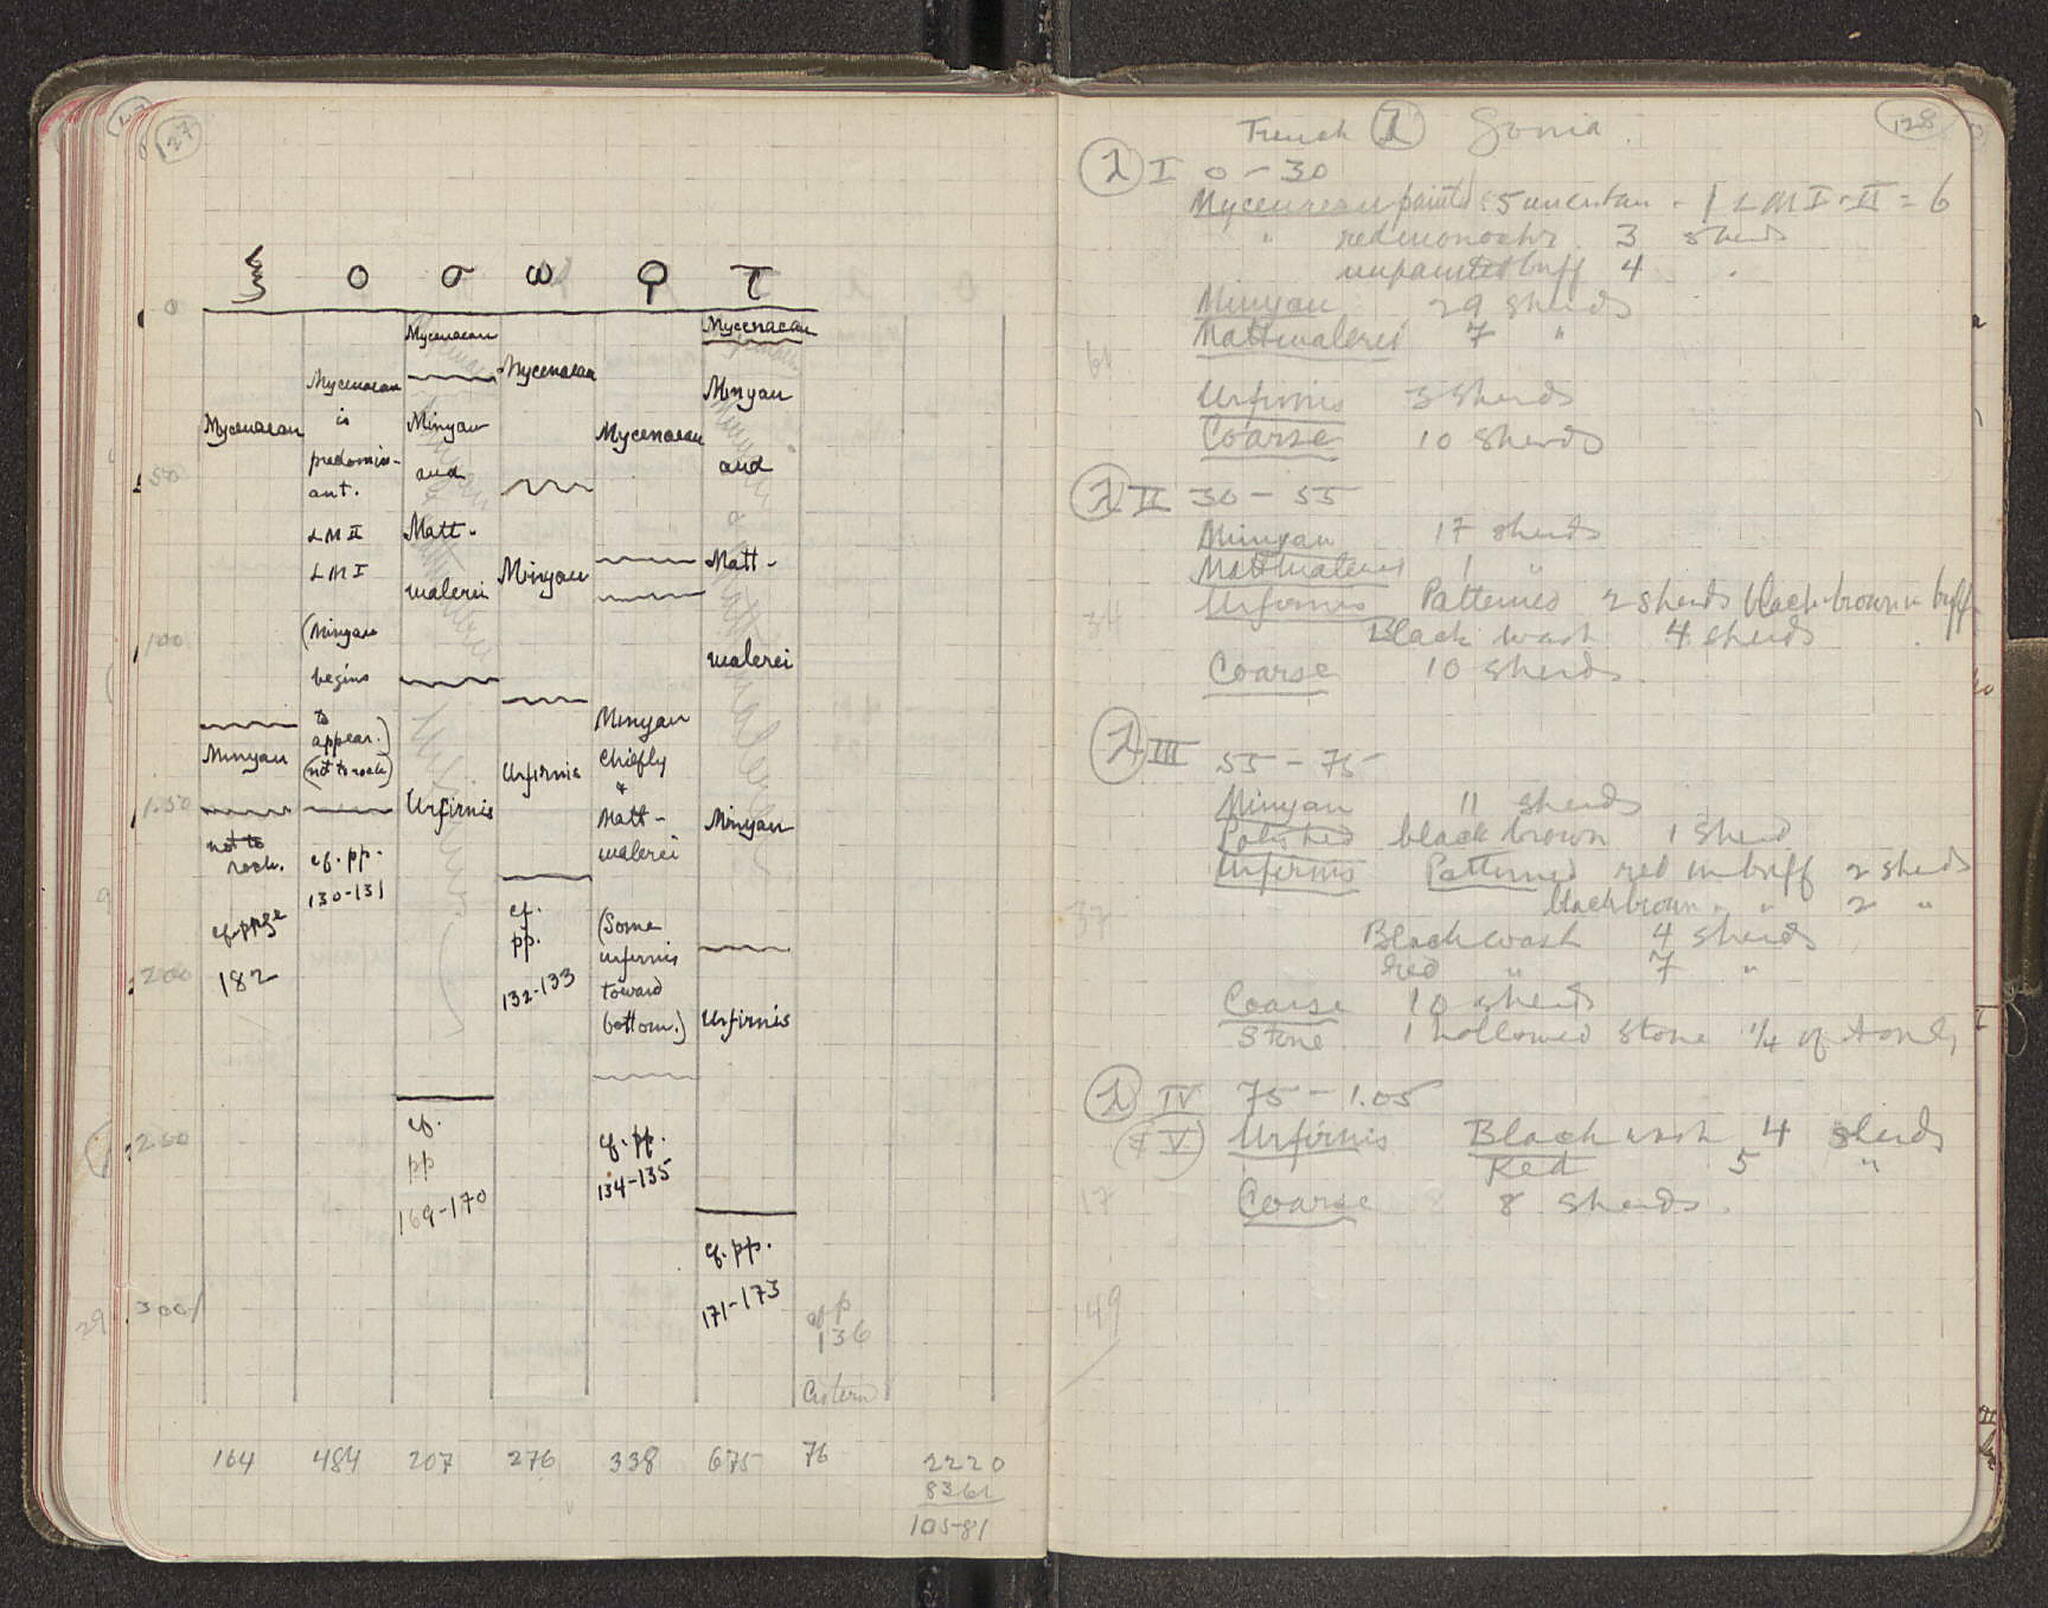 127
ξ ο σ ω Ϙ τ
0
50
100
1.50
200
250
300
Mycenaean
Minyan
not to
rock.
cf. ppge
182
Mycenaean
is
predomin-
ant.
LM II
LM I
(Minyan
begins
to
appear.)
(not to rock)
cf. pp.
130-131
Mycenaean
Minyan
and
Matt-
malerei
Urfirnis
cf.
pp
169-170
Mycenaean
Minyan
Urfirnis
cf.
pp.
132-133
Mycenaean
Minyan
chiefly
&
Matt-
malerei
(Some
urfirnis
toward
bottom.)
cf. pp.
134-135
Mycenaean
Minyan
and
Matt-
malerei
Minyan
Urfirnis
cf. pp.
171-173
cf p
136
Cistern
164 484 207 276 338 675 76 2220
8361
10581
128
Trench L Gonia.
λ I 0-30
Mycenaean painted: 5 uncertain. 1 LM I-II = 6
" red monochr. 3 sherds
unpainted buff 4 "
Minyan 29 sherds
Mattmalerei 7 "
61
Urfirnis 3 sherds
Coarse 10 sherds
λ II 30-55
Minyan 17 sherds
Mattmalerei 1 "
Urfirnis Patterned 2 sherds black-brown on buff
34
Black wash 4 sherds
Coarse 10 sherds.
λ III 55-75
Minyan 11 sherds
Polished black brown 1 sherd
Urfirnis Patterned red on buff 2 sherds
black brown " " 2 "
37
Black wash 4 sherds
Red " 7 "
Coarse 10 sherds
Stone 1 hollowed stone 1/4 of it only
λ IV 75-1.05
(& V) Urfirnis Black wash 4 sherds
Red 5 "
17
Coarse 8 sherds.
149